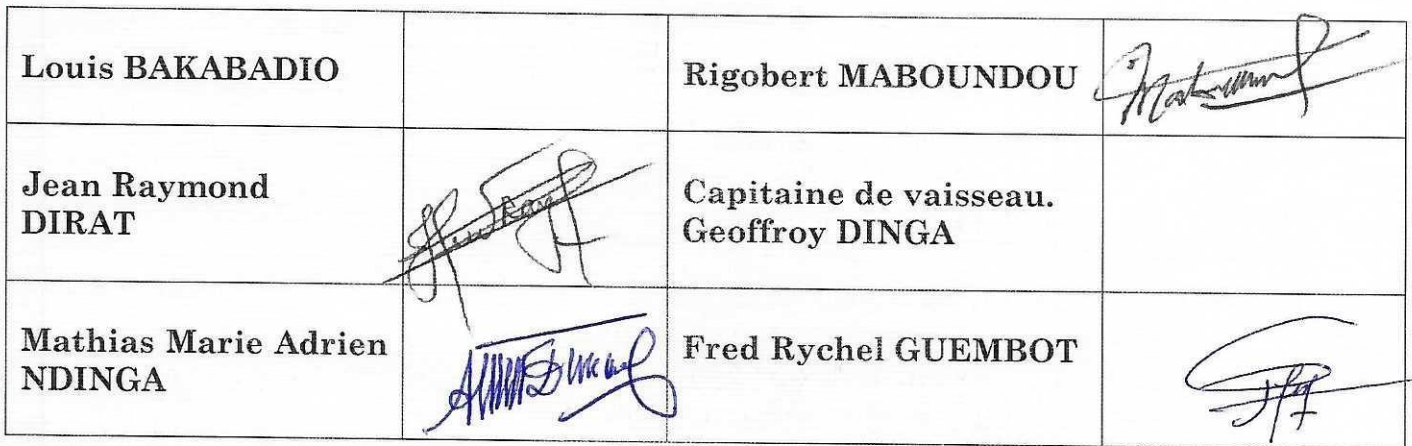 Louis BAKABADIO
Rigobert MABOUNDOU
Jean Raymond
DIRAT
Capitaine de vaisseau.
Geoffroy DINGA
Mathias Marie Adrien
NDINGA
Fred Rychel GUEMBOT